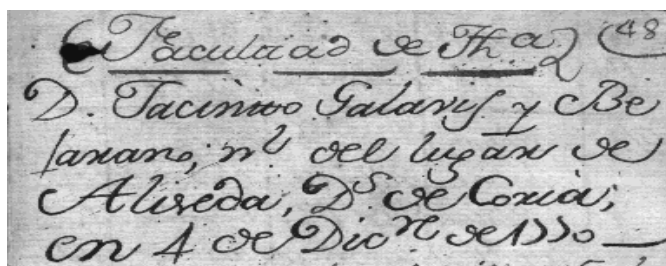 Facultad de Th.a 48
D. Jacintto Galavis y Be
larano, n.l del lugar de
Aliseda, D.s de Coria;
en 4 de Dic.re de 1770